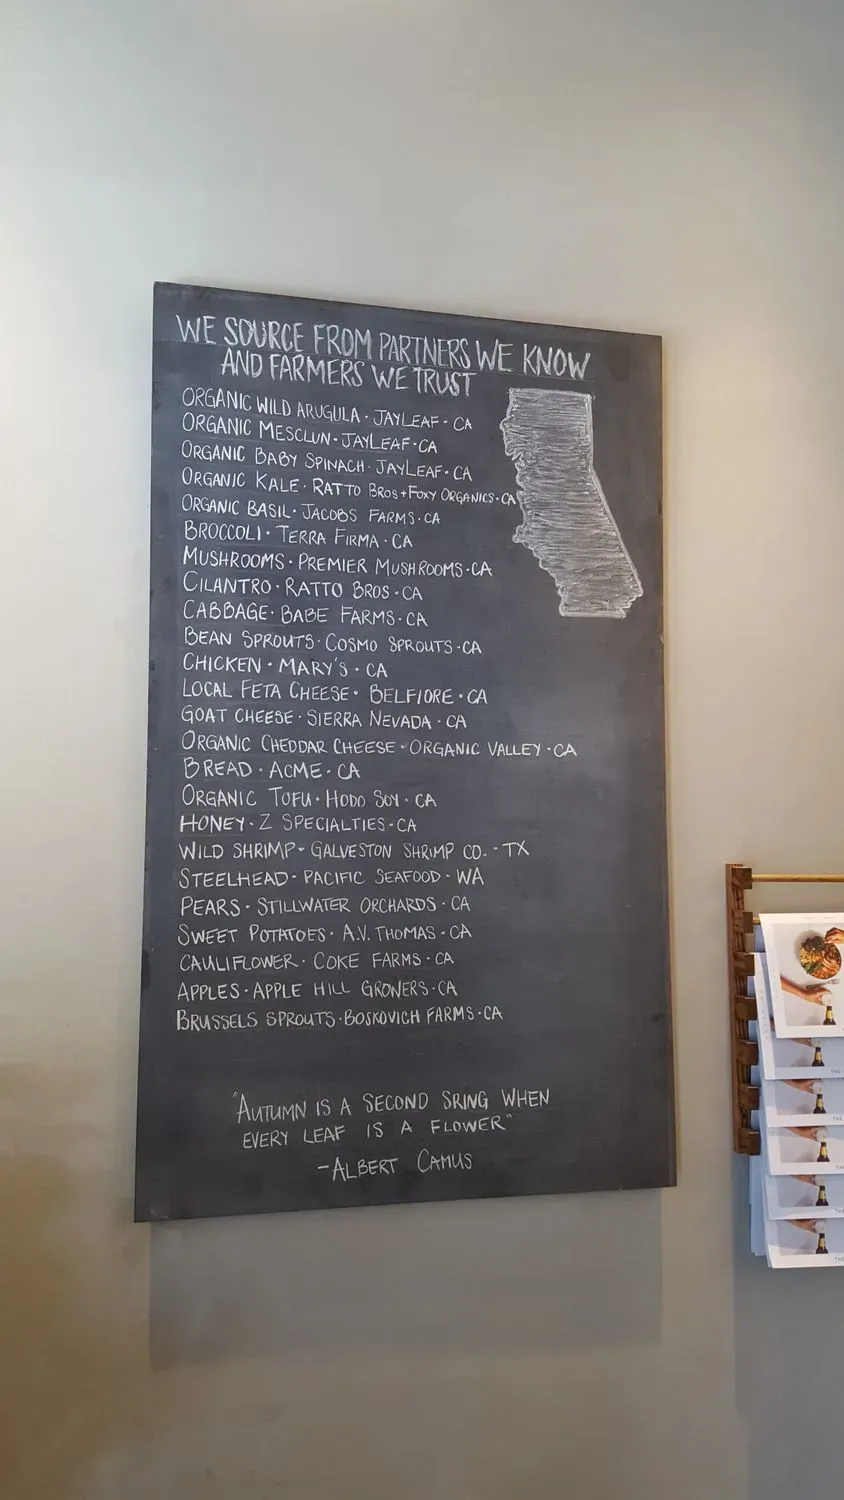 WE SOURCE FROM PARTNERS WE KNOW
AND FARMERS WE TRUST
ORGANIC WILD ARUGULA · JAYLEAF · CA
ORGANIC MESCLUN · JAYLEAF · CA
ORGANIC BABY SPINACH · JAYLEAF · CA
ORGANIC KALE · RATTO BROS + FOXY ORGANICS · CA
ORGANIC BASIL · JACOBS FARMS · CA
BROCCOLI · TERRA FIRMA · CA
MUSHROOMS · PREMIER MUSHROOMS · CA
CILANTRO · RATTO BROS · CA
CABBAGE · BABE FARMS · CA
BEAN SPROUTS · COSMO SPROUTS · CA
CHICKEN · MARY'S · CA
LOCAL FETA CHEESE · BELFIORE · CA
GOAT CHEESE · SIERRA NEVADA · CA
ORGANIC CHEDDAR CHEESE · ORGANIC VALLEY · CA
BREAD · ACME · CA
ORGANIC TOFU · HODO SOY · CA
HONEY · Z SPECIALTIES · CA
WILD SHRIMP - GALVESTON SHRIMP CO. - TX
STEELHEAD - PACIFIC SEAFOOD · WA
PEARS · STILLWATER ORCHARDS · CA
SWEET POTATOES · A.V. THOMAS · CA
CAULIFLOWER · COKE FARMS · CA
APPLES · APPLE HILL GROWERS · CA
BRUSSELS SPROUTS · BOSKOVICH FARMS · CA
"AUTUMN IS A SECOND SRING WHEN
EVERY LEAF IS A FLOWER"
-ALBERT CAMUS